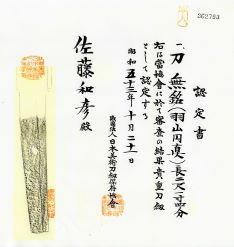 362783
認定書
一、刀 無銘(羽山円真)長二尺二寸四分
右は當協會に於て審査の結果貴重刀剣
として認定する
昭和五十三年十月二十一日
財團法人日本美術刀剣保存協會
佐藤和彦殿